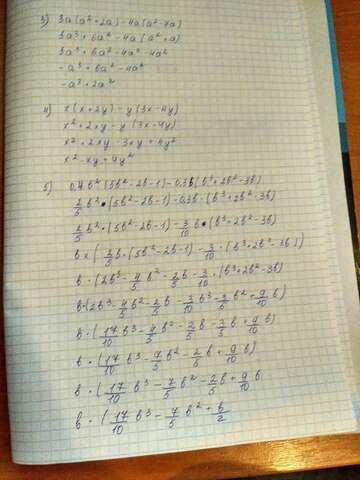 3) 3a(a²+2a)-4a(a²-4a)
3a³+6a²-4a(a²+a)
3a³+6a²-4a³-4a²
-a³+6a²-4a²
-a³+2a²
4) x(x+2y)-y(3x-4y)
x²+2xy-y(3x-4y)
x²+2xy-3xy+4y²
x²-xy+4y²
5) 0,4b²(5b²-2b-1)-0,3b(b³+2b²-3b)
2/5 b²•(5b²-2b-1)-0,3b·(b³+2b²-3b)
2/5 b²•(5b²-2b-1)-3/10 b•(b³+2b²-3b)
b×(2/5 b·(5b²-2b-1)-3/10·(b³+2b²-3b))
b·(2b³-4/5 b²-2/5 b-3/10·(b³+2b²-3b)
b·(2b³-4/5 b²-2/5 b-3/10 b³-3/5 b²+9/10 b)
b·(17/10 b³-4/5 b²-2/5 b-3/5 b+9/10 b)
b·(17/10 b³-7/5 b²-2/5 b+9/10 b)
b·(17/10 b³-7/5 b²-2/5 b+9/10 b
b·(17/10 b³-7/5 b²+b/2